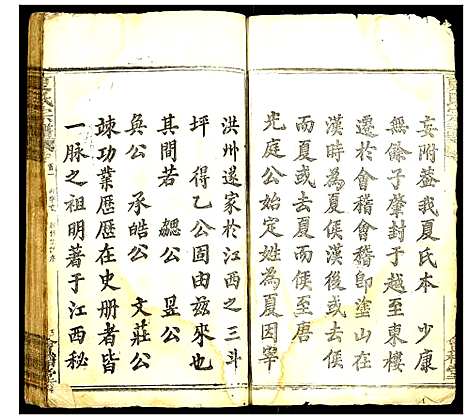 妄附蓋我夏氏本　少康
無餘子肇封于越至東樓
遷於會稽會稽即塗山在
漢時為夏侯漢後或去侯
而夏或去夏而侯至唐
光庭公始定姓為夏因宰
洪州遂家於江西之三斗
坪　得乙公固由茲來也
其間若　勰公　昱公
奐公　承皓公　文莊公
竦功業歷歷在史册者皆
一脉之祖明著于江西秘
夏氏宗譜
會稽堂